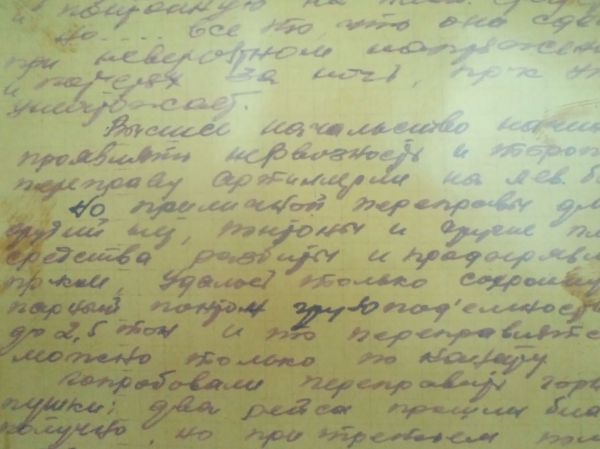 и понтонную на
но..... все то, что она сде
при невероятном напряжени
и потерях за ночь, пр-к
уничтожает.
Высшее начальство начин
проявлять нервозность и тороп
переправу артиллерии на лев. б
но приличной переправы дл
орудий нет, понтоны и другие пл
средства разбиты и
пр-ком, удалось только
парный понтон грузопод'емность
до 2,5 тон и то переправлятьс
можно только по канату
Попробовали переправить гор
пушки; два рейса прошли бла
получно, но при третьем